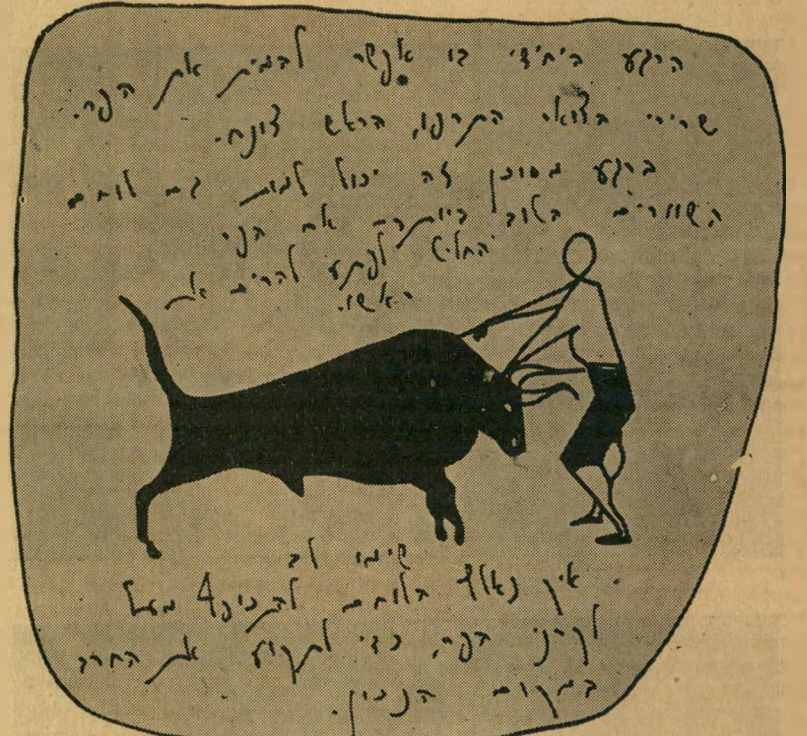 הרגע היחידי בו אפשר להמית את הפר.
שרירי הצואר התרפו, הראש צונח.
ברגע מסוכן זה יכול למות גם לוחם
השוורים הטוב ביותר אם הפר
החליט לפתע להרים את
ראשו.
שימו לב
איך נאלץ הלוחם להתכופף מעל
לקרני הפר, כדי לתקוע את החרב
במקום הנכון.